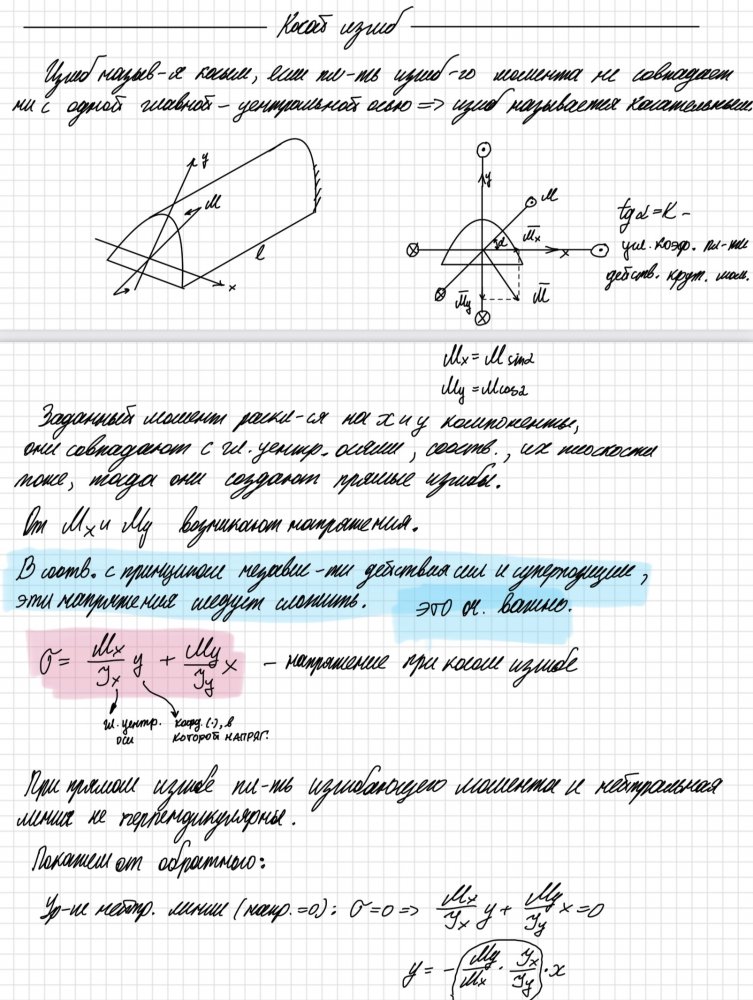 Косой изгиб
Изгиб назыв-я косым, если пл-ть изгиб-го момента не совпадает
ни с одной главной - центральной осью => изгиб называется касательным
y
M
x
l
y
M
α
M̅x
x
M̅y
M̅
tgα = K -
угл. коэф. пл-ти
действ. крут. мом.
Mx = M sinα
My = M cosα
Заданный момент раскл-ся на x и y компоненты,
они совпадают с гл. центр. осями, соотв., их плоскости
тоже, тогда они создают прямые изгибы.
От Mx и My возникают напряжения.
В соотв. с принципом независ-ти действия сил и суперпозиции,
эти напряжения следует сложить. это оч. важно.
σ = Mx/Jx y + My/Jy x - напряжение при косом изгибе
гл. центр. оси
коорд. (·), в которой напряг.
При прямом изгибе пл-ть изгибающего момента и нейтральная
линия не перпендикулярны.
Покажем от обратного:
Ур-ие нейтр. линии (напр. = 0): σ = 0 => Mx/Jx y + My/Jy x = 0
y = - (My/Mx · Jx/Jy) · x